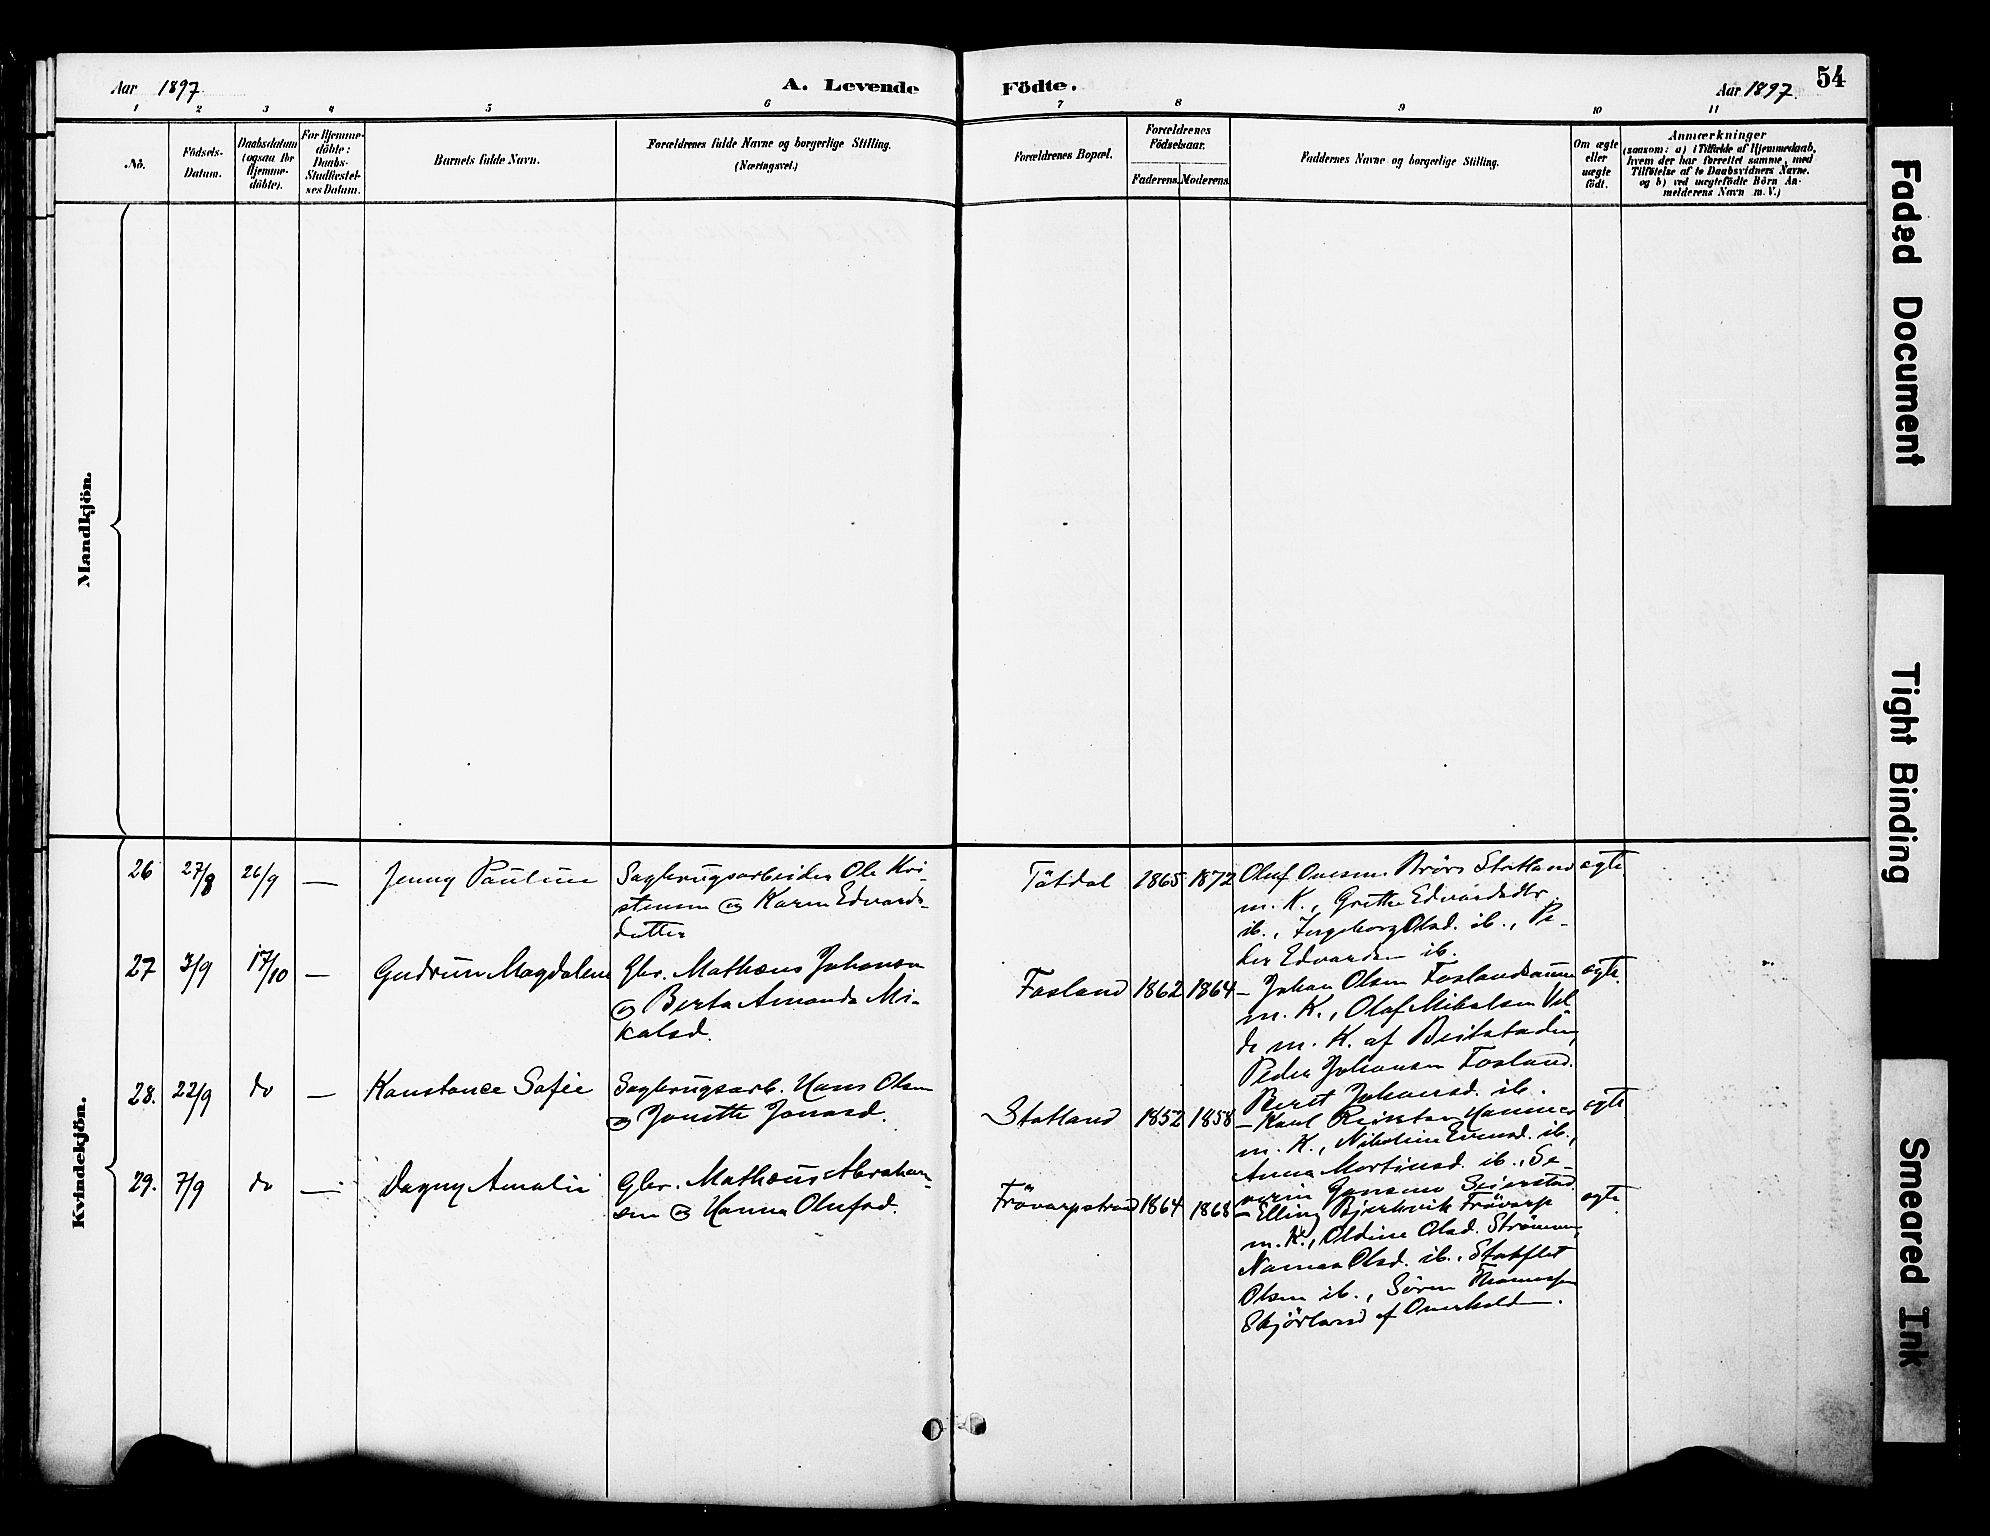 Aar 1897
A. Levende
Födte.
Aar 1897.
54
1 2 3 4 5 6 7 8 9 10 11
Nô.
Födsels-
Datum.
Daabsdatum
(ogsaa for
Hjemme-
döbte).
For Hjemme-
döbte:
Daabs-
Stadfæstel-
ses Datum.
Barnets fulde Navn.
Forældrenes fulde Navne og borgerlige Stilling.
(Næringsvei.)
Forældrenes Bopæl.
Forældrenes
Födselsaar.
Faderens. Moderens.
Faddernes Navne og borgerlige Stilling.
Om ægte
eller
uægte
födt.
Anmærkninger
(saasom: a) i Tilfælde af Hjemmedaab,
hvem der har forrettet samme, med
Tilföielse af to Daabsvidners Navne.
og b) ved uægtefödte Börn An-
melderens Navn m. V.)
Mandkjön.
Kvindekjön.
26 27/8 26/9 — Jenny Pauline
Sagbrugsarbeider Ole Kri-
stensen og Karen Edvards-
datter
Tötdal 1865 1872
Oluf Ovesen Statland
m. K., Grethe Edvardsdtr.
ib., Ingeborg Olsd. ib., Pe-
der Edvardsen ib.
ægte
27 3/9 17/10 — Gudrun Magdalene
Gbr. Mathæus Johansen
og Berta Amanda Mi-
kalsd.
Fosland 1862 1864
— Johan Olsen Foslandsaune
m. K., Olaf Mikalsen Vel
de m. K. af Beitstaden,
Peder Johansen Fosland.
Beret Johansd. ib.
ægte
28. 22/9 do — Konstance Sofie
Sagbrugsarb. Hans Olsen
og Jonette Jonasd.
Statland 1852 1858
— Karl Reinertsen
m. K., Nikoline Evensd. ib.,
Anna Martinsd. ib., Se-
verin Jensen Seierstad.
ægte
29. 7/9 do — Dagny Amalie
Gbr. Mathæus Abraham-
sen og Hanna Olufsd.
Frövarpstrand 1864 1868
— Elling Bjerkvik Frövarp
m. K., Oldine Olsd. Strömmen,
Olsd. ib.,
Olsen ib., Sören Thomassen
Skjörland af Overhalden.
ægte
Faded Document
Tight Binding
Smeared Ink